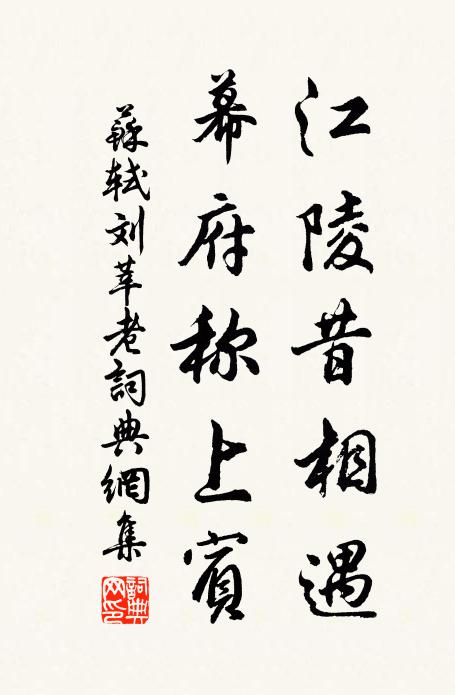 江陵昔相遇
幕府称上賓
蘇軾刘莘老詞典網集
詞典网印